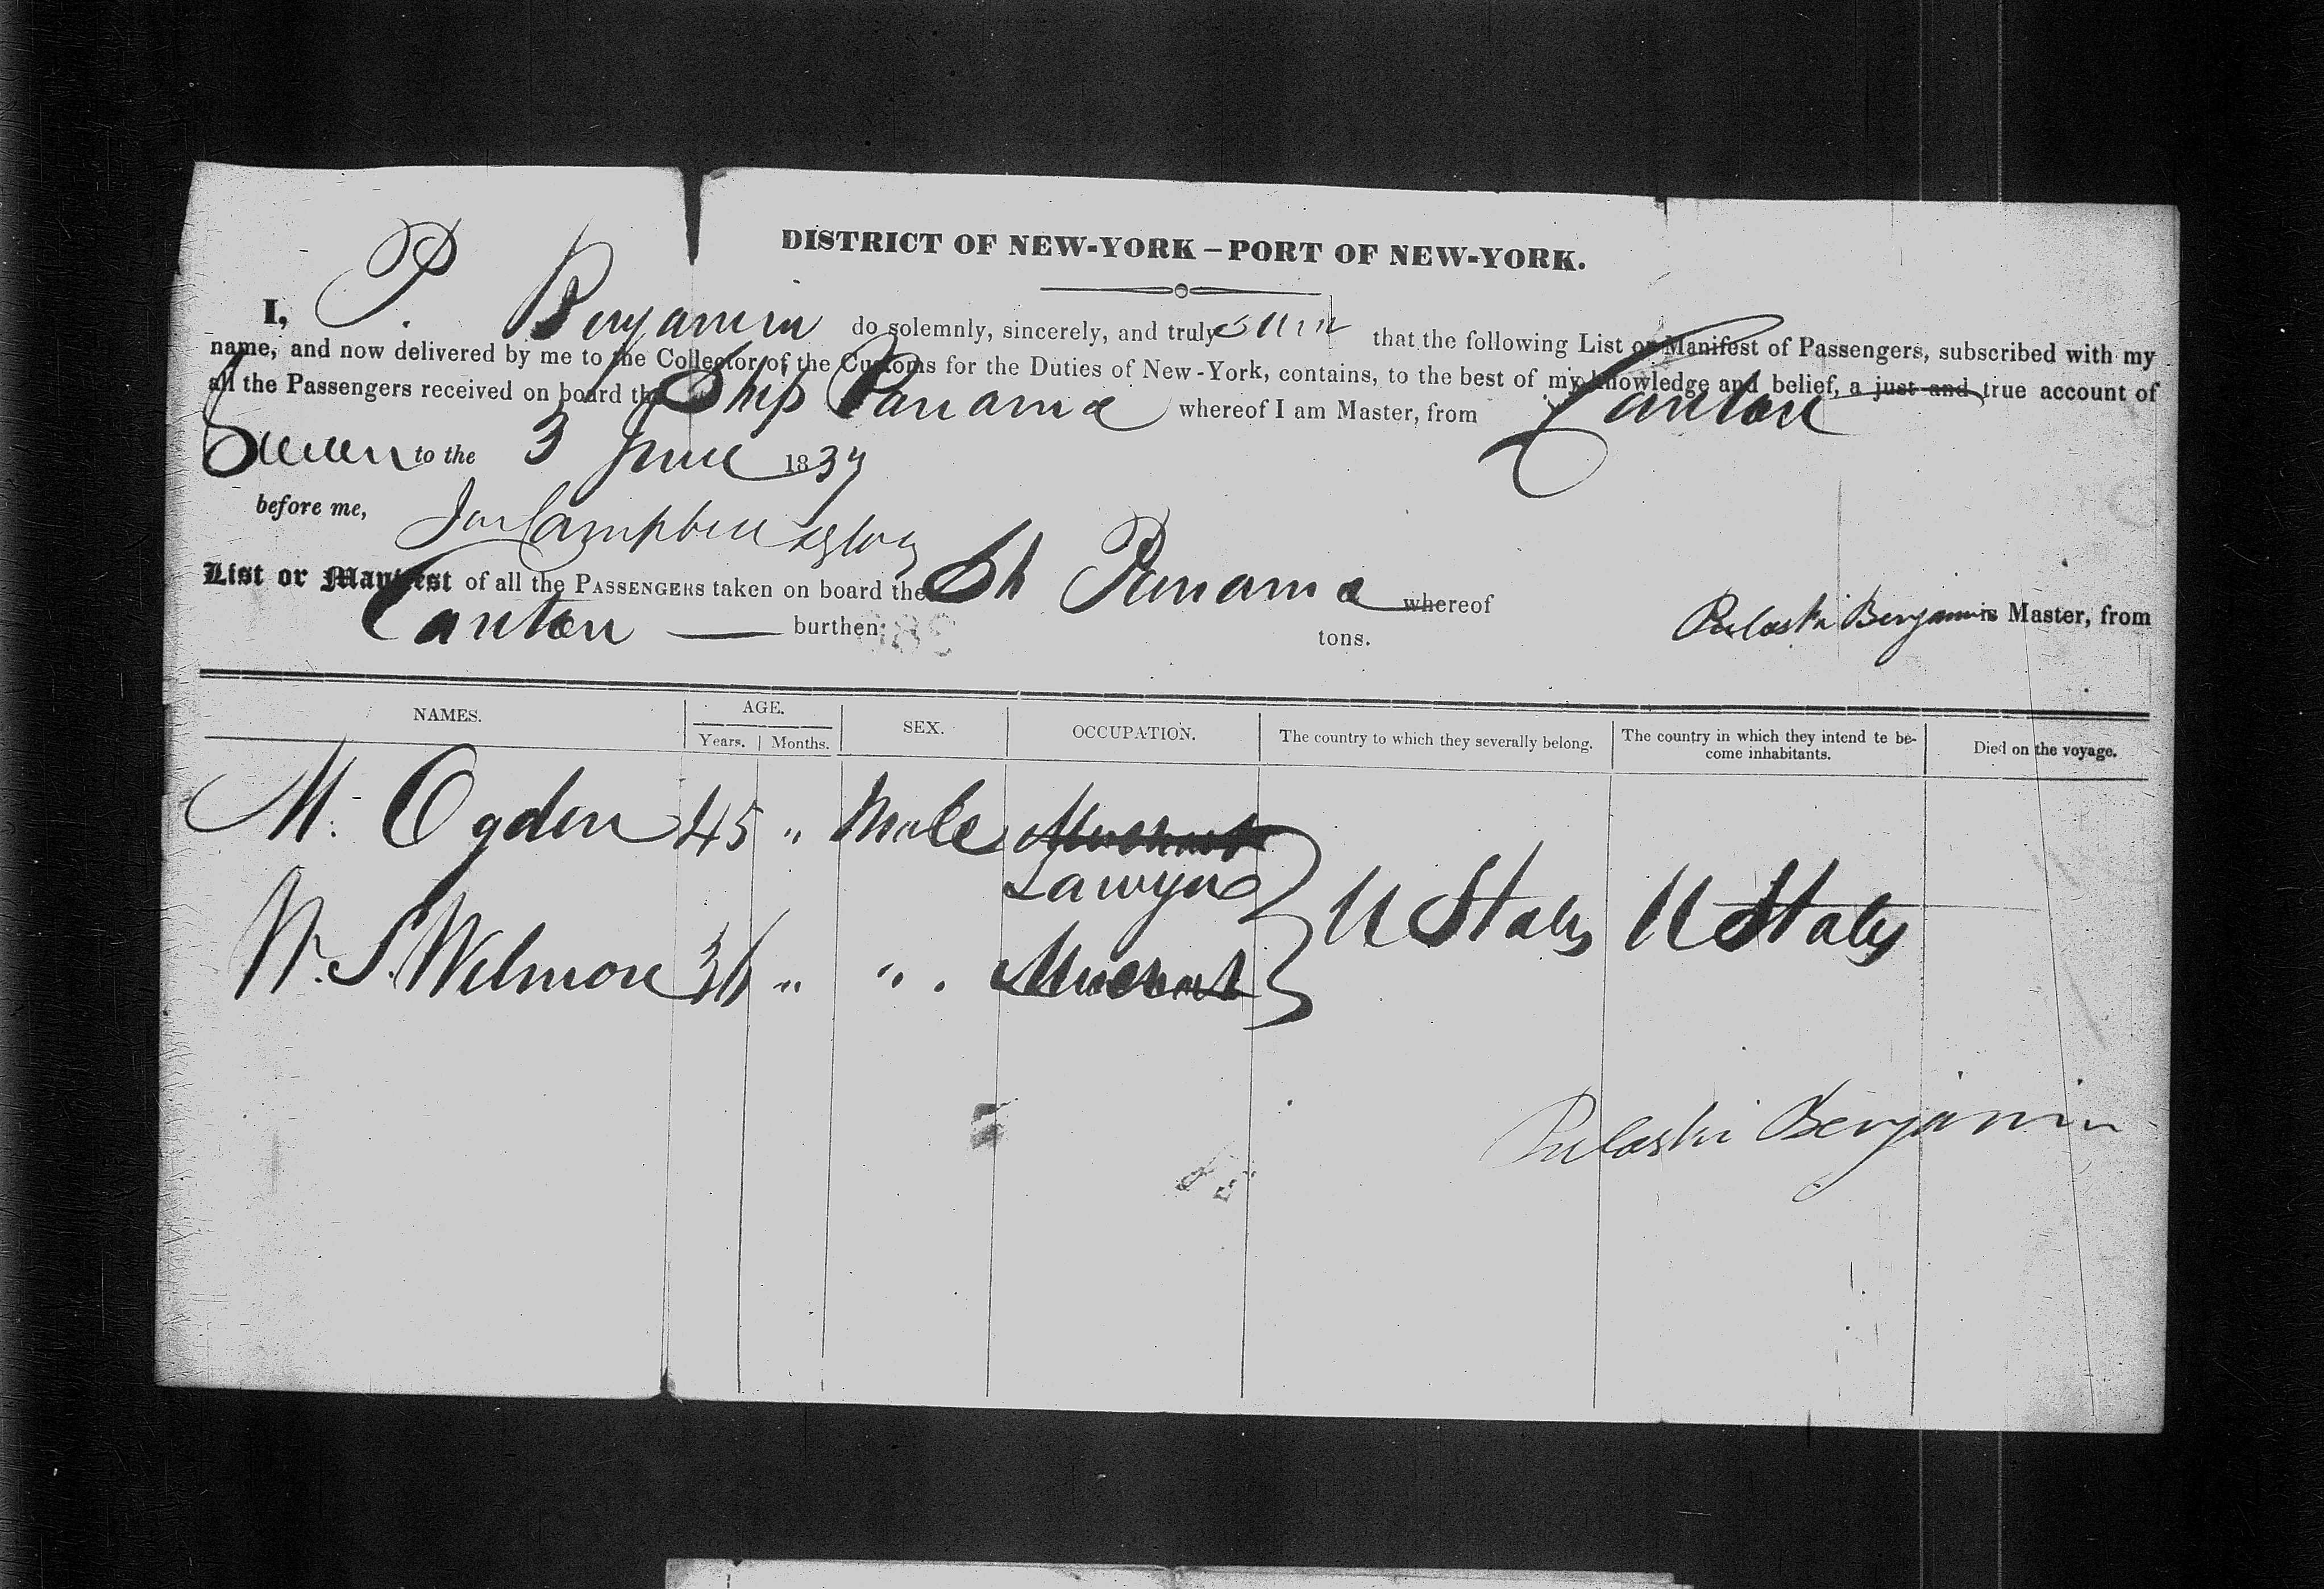 DISTRICT OF NEW-YORK – PORT OF NEW-YORK.
I, P. Benjamin do solemnly, sincerely, and truly that the following List or Manifest of Passengers, subscribed with my
name, and now delivered by me to the Collector of the Customs for the Duties of New-York, contains, to the best of my knowledge and belief, a just and true account of
all the Passengers received on board the Ship Panama whereof I am Master, from Canton
Sworn to the 3 June 1837
before me, Campbell
List or Manifest of all the PASSENGERS taken on board the Sh Panama whereof Pulaski Benjamin is Master, from
Canton — burthen tons.
NAMES. AGE. SEX. OCCUPATION. The country to which they severally belong. The country in which they intend te be-
come inhabitants. Died on the voyage.
Years. Months.
M. Ogden 45 " Male Merchant
Lawyer
W. S. Wetmore 36 " " Merchant U States U States
Pulaski Benjamin